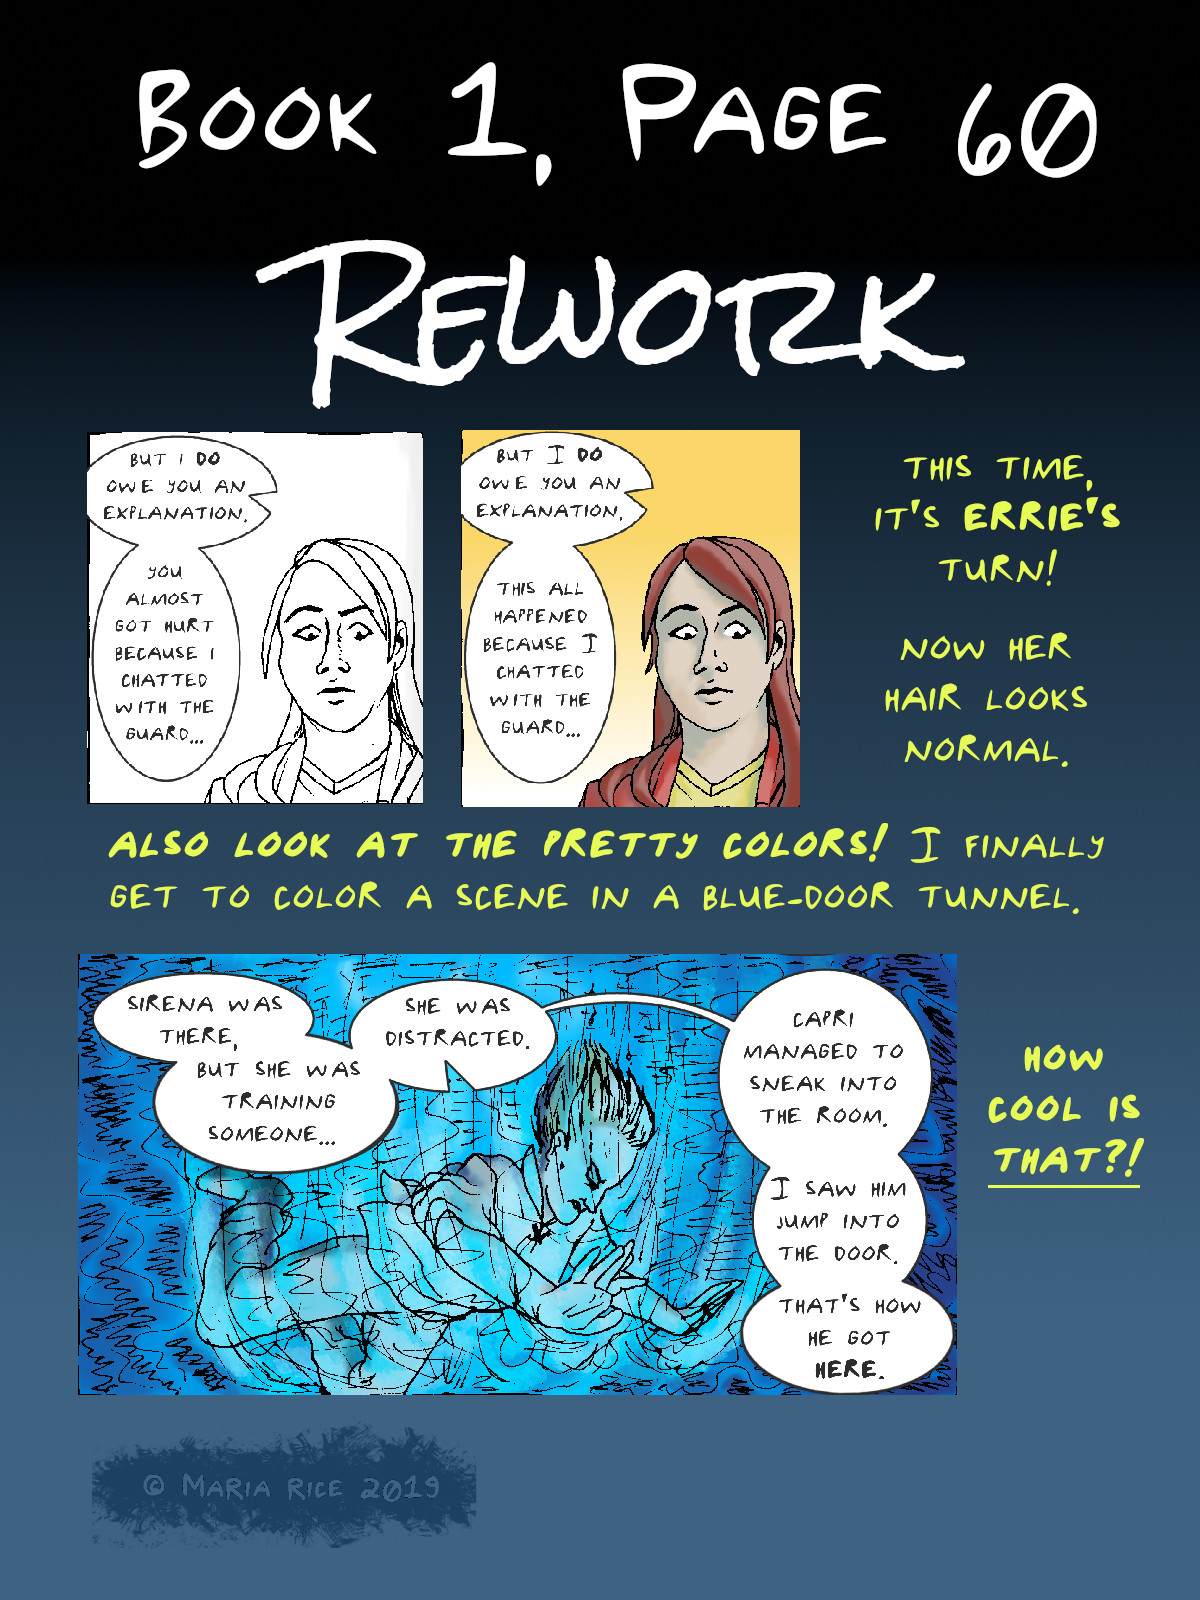 BOOK 1, PAGE 60
REWORK
BUT I DO
OWE YOU AN
EXPLANATION.
YOU
ALMOST
GOT HURT
BECAUSE I
CHATTED
WITH THE
GUARD...
BUT I DO
OWE YOU AN
EXPLANATION.
THIS ALL
HAPPENED
BECAUSE I
CHATTED
WITH THE
GUARD...
THIS TIME,
IT'S ERRIE'S
TURN!
NOW HER
HAIR LOOKS
NORMAL.
ALSO LOOK AT THE PRETTY COLORS! I FINALLY
GET TO COLOR A SCENE IN A BLUE-DOOR TUNNEL.
SIRENA WAS
THERE,
BUT SHE WAS
TRAINING
SOMEONE...
SHE WAS
DISTRACTED.
CAPRI
MANAGED TO
SNEAK INTO
THE ROOM.
I SAW HIM
JUMP INTO
THE DOOR.
THAT'S HOW
HE GOT
HERE.
HOW
COOL IS
THAT?!
© MARIA RICE 2019